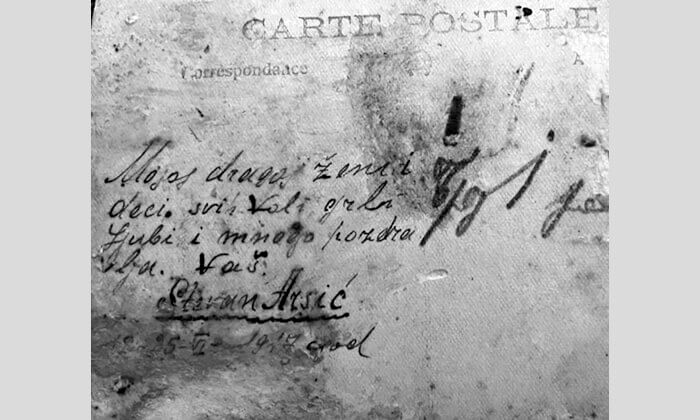 CARTE POSTALE
Correspondance A
Mojoj dragoj ženi i
deci. svih Voli grli
ljubi i mnogo pozdra
vlja. Vaš.
Stevan Arsić
25-VI-1917 god